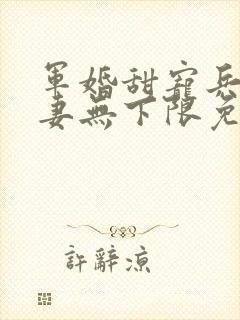 軍婚甜寵兵
妻無下限免
許辭涼